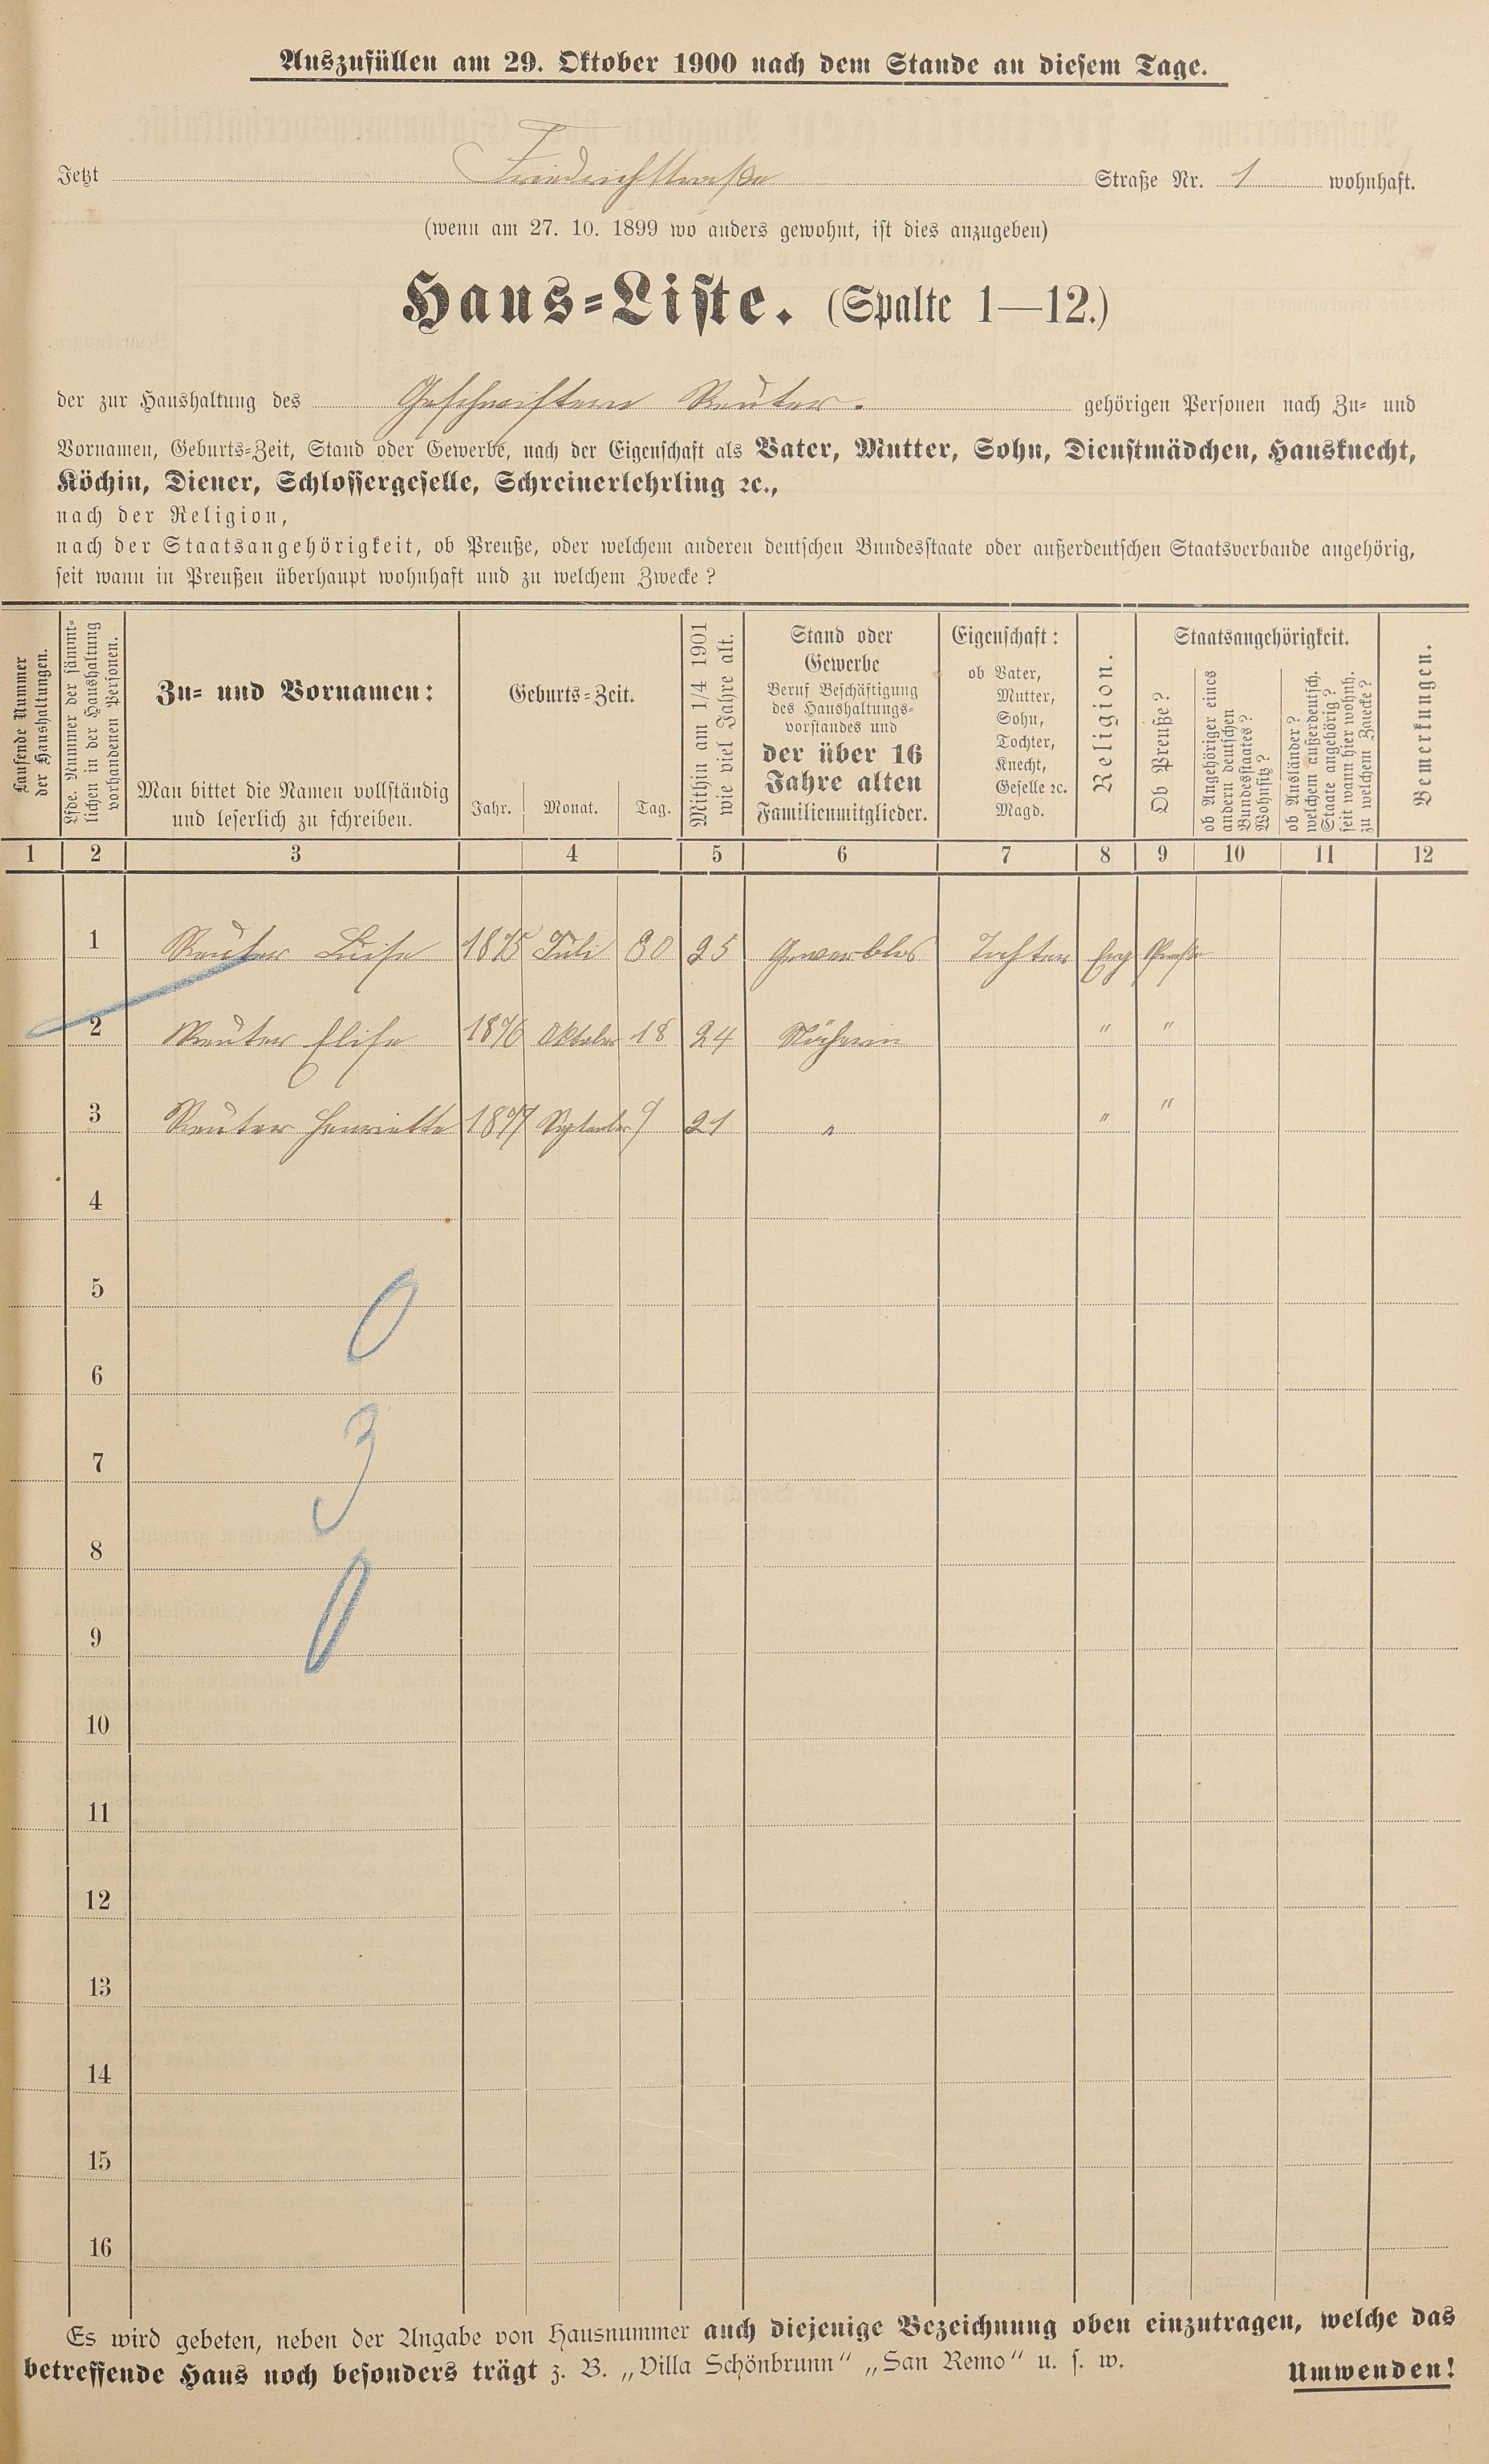 Auszufüllen am 29. Oktober 1900 nach dem Stande an diesem Tage.
Jetzt Friedrichstraße Straße Nr. 1 wohnhaft.
(wenn am 27. 10. 1899 wo anders gewohnt, ist dies anzugeben)
Haus-Liste. (Spalte 1—12.)
der zur Haushaltung des Geschwistern Reuter. gehörigen Personen nach Zu- und
Vornamen, Geburts-Zeit, Stand oder Gewerbe, nach der Eigenschaft als Vater, Mutter, Sohn, Dienstmädchen, Hausknecht,
Köchin, Diener, Schlossergeselle, Schreinerlehrling ꝛc.,
nach der Religion,
nach der Staatsangehörigkeit, ob Preuße, oder welchem anderen deutschen Bundesstaate oder außerdeutschen Staatsverbande angehörig,
seit wann in Preußen überhaupt wohnhaft und zu welchem Zwecke?
Laufende Nummer
der Haushaltungen.
Lfde. Nummer der sämmt-
lichen in der Haushaltung
vorhandenen Personen.
Zu- und Vornamen:
Man bittet die Namen vollständig
und leserlich zu schreiben.
Geburts-Zeit.
Jahr. Monat. Tag.
Mithin am 1/4 1901
wie viel Jahre alt.
Stand oder
Gewerbe
Beruf Beschäftigung
des Haushaltungs-
vorstandes und
der über 16
Jahre alten
Familienmitglieder.
Eigenschaft:
ob Vater,
Mutter,
Sohn,
Tochter,
Knecht,
Geselle ꝛc.
Magd.
Religion.
Staatsangehörigkeit.
Ob Preuße?
ob Angehöriger eines
andern deutschen
Bundesstaates?
Wohnsitz?
ob Ausländer?
welchem außerdeutsch.
Staate angehörig?
seit wann hier wohnh.
zu welchem Zwecke?
Bemerkungen.
1 2 3 4 5 6 7 8 9 10 11 12
1 Reuter Luise 1875 Juli 30 25 Gewerblos Tochter Evg Preuße
2 Reuter Elise 1876 Oktober 18 24 Näherin " "
3 Reuter Henriette 1877 September 9 21 " " "
4
5
0
6
7
3
8
9
0
10
11
12
13
14
15
16
Es wird gebeten, neben der Angabe von Hausnummer auch diejenige Bezeichnung oben einzutragen, welche das
betreffende Haus noch besonders trägt z. B. „Villa Schönbrunn“ „San Remo“ u. s. w. Umwenden!